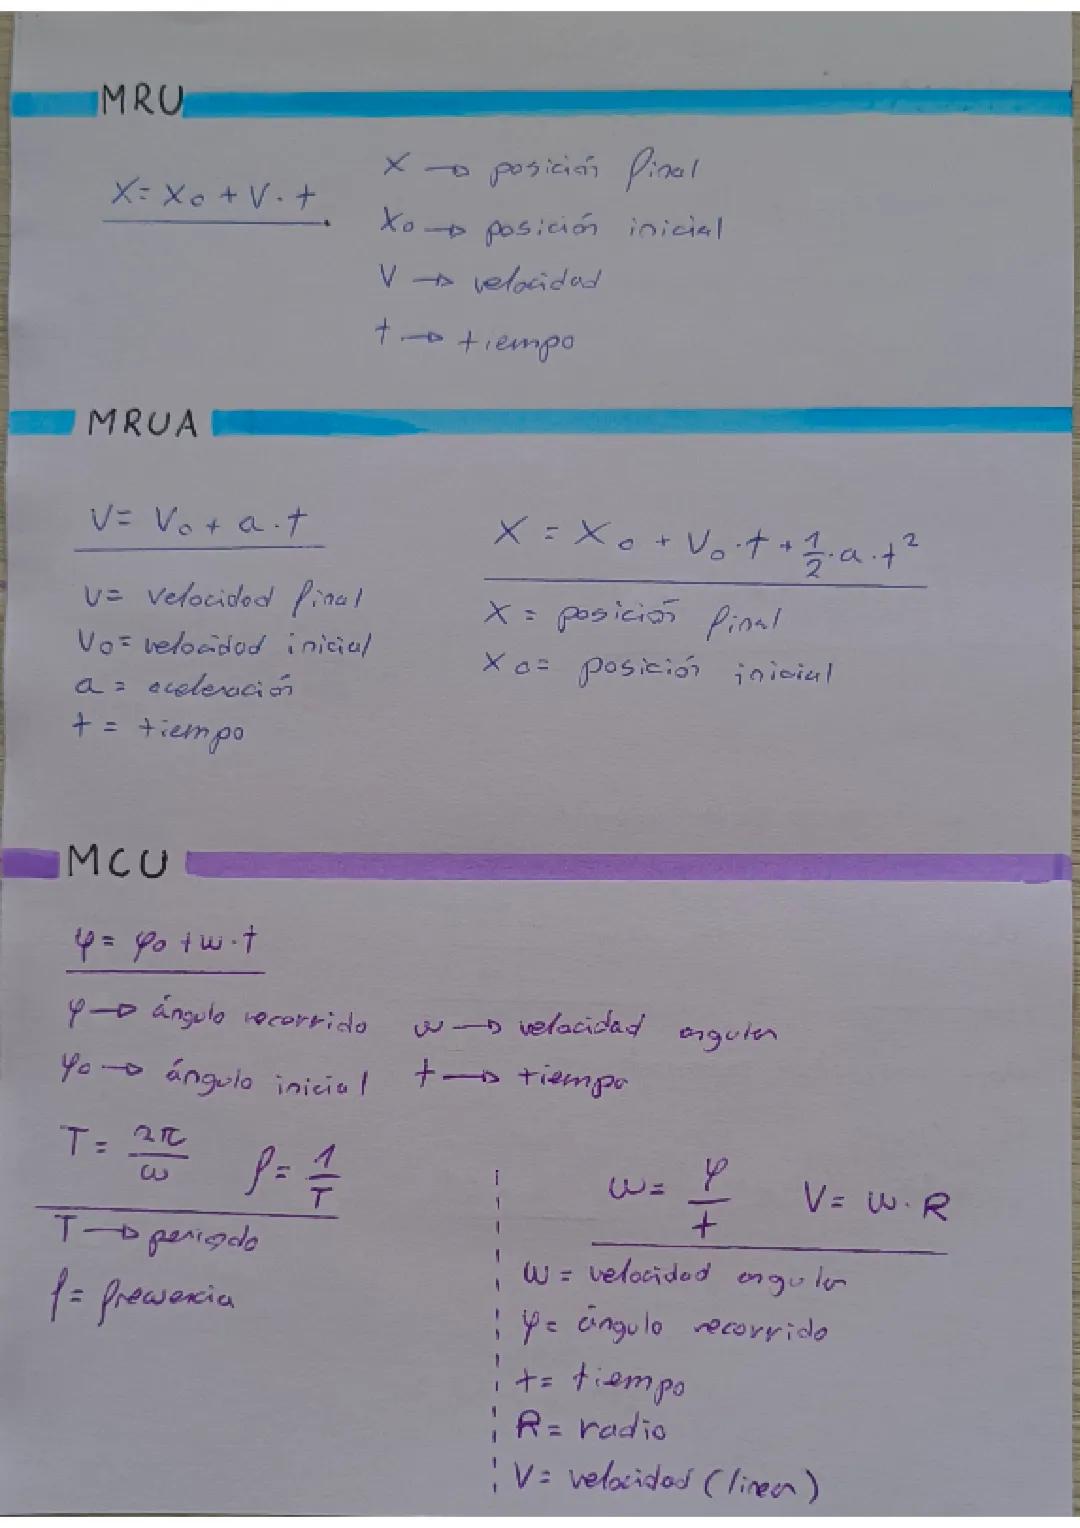 MRU
X = X₀ + V · t
X → posición final
X₀ → posición inicial
V → velocidad
t → tiempo
MRUA
V = V₀ + a · t
V = velocidad final
V₀ = velocidad inicial
a = aceleración
t = tiempo
X = X₀ + V₀ · t + 1/2 · a · t²
X = posición final
X₀ = posición inicial
MCU
φ = φ₀ + w · t
φ → ángulo recorrido
φ₀ → ángulo inicial
w → velocidad angular
t → tiempo
T = 2π/ω f = 1/T
T → periodo
f = frecuencia
ω = φ/t V = ω · R
ω = velocidad angular
φ = ángulo recorrido
t = tiempo
R = radio
V = velocidad (linear)